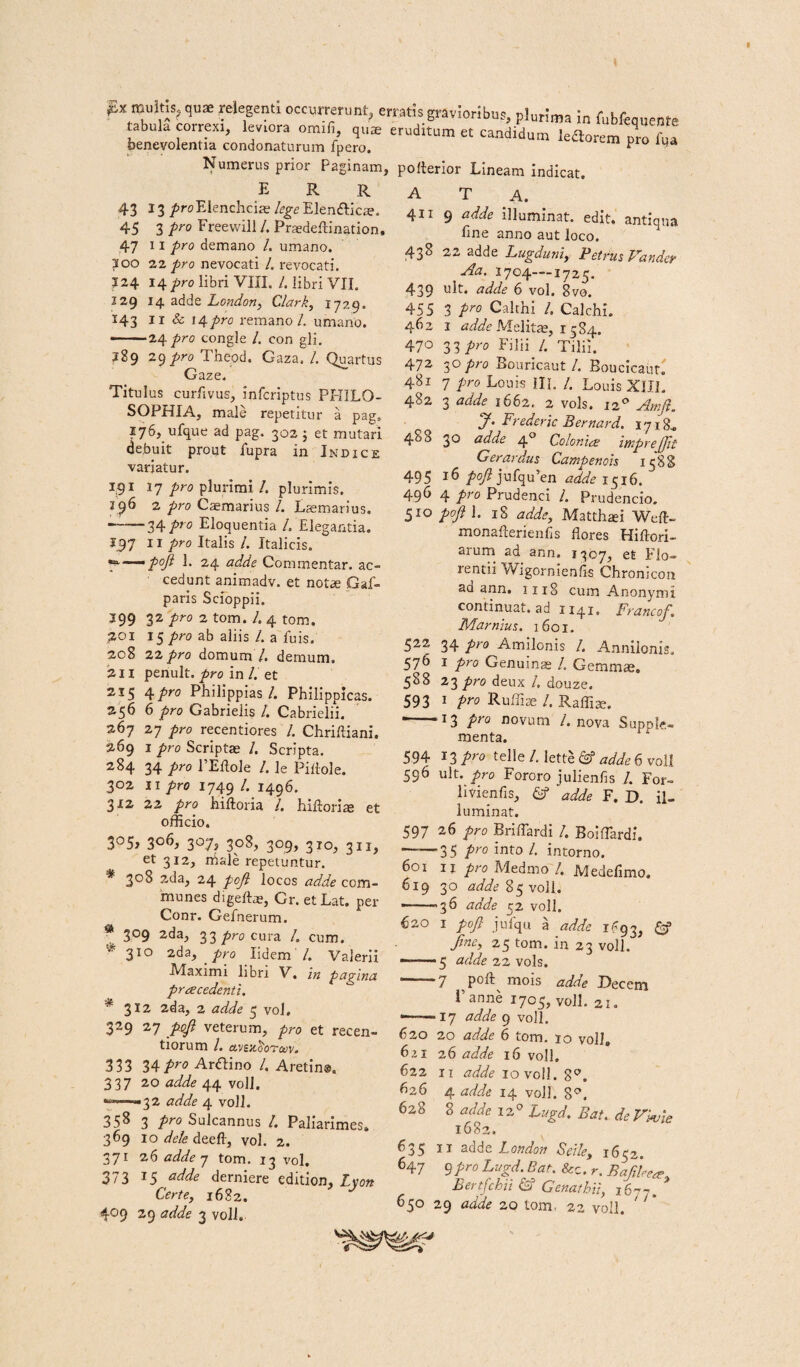 Ex multis, quæ relegenti occurrerunt, erratis gravioribus, plurima in ſubſequente
tabula correxi, leviora omiſi, quæ eruditum et candidum lectorem pro ſua
benevolentia condonaturum ſpero.
Numerus prior Paginam, poſterior Lineam indicat.
E R R A T A.
43 13 pro Elenchciæ lege Elencticæ.
45 3 pro Freewill l. Prædeſtination.
47 11 pro demano l. umano.
100 22 pro nevocati l. revocati.
124 14 pro libri VIII. l. libri VII.
129 14 adde London, Clark, 1729.
143 11 & 14 pro remano l. umano.
——24 pro congle l. con gli.
189 29 pro Theod. Gaza. l. Quartus
Gaze.
Titulus curſivus, inſcriptus PHILO-
SOPHIA, malè repetitur à pag.
176, uſque ad pag. 302; et mutari
debuit prout ſupra in INDICE
variatur.
191 17 pro plurimi l. plurimis.
196 2 pro Cæmarius l. Læmarius.
——34 pro Eloquentia l. Elegantia.
197 11 pro Italis l. Italicis.
——poſt l. 24 adde Commentar. ac-
cedunt animadv. et notæ Gaſ-
paris Scioppii.
199 32 pro 2 tom. l. 4 tom.
201 15 pro ab aliis l. a ſuis.
208 22 pro domum l. demum.
211 penult. pro in l. et
215 4 pro Philippias l. Philippicas.
256 6 pro Gabrielis l. Cabrielii.
267 27 pro recentiores l. Chriſtiani.
269 1 pro Scriptæ l. Scripta.
284 34 pro l'Eſtole l. le Piſtole.
302 11 pro 1749 l. 1496.
312 22 pro hiſtoria l. hiſtoriæ et
officio.
305, 306, 307, 308, 309, 310, 311,
et 312, malè repetuntur.
* 308 2da, 24 poſt locos adde com-
munes digeſtæ, Gr. et Lat. per
Conr. Geſnerum.
* 309 2da, 33 pro cura l. cum.
* 310 2da, pro Iidem l. Valerii
Maximi libri V. in pagina
præcedenti.
* 312 2da, 2 adde 5 vol.
329 27 poſt veterum, pro et recen-
tiorum l. ανεκδοτων.
333 34 pro Arctino l. Aretino.
337 20 adde 44 voll.
——32 adde 4 voll.
358 3 pro Sulcannus l. Paliarimes.
369 10 dele deeſt, vol. 2.
371 26 adde 7 tom. 13 vol.
373 15 adde derniere edition, Lyon
Certe, 1682.
409 29 adde 3 voll.
411 9 adde illuminat. edit. antiqua
ſine anno aut loco.
438 22 adde Lugduni, Petrus Vander
Aa. 1704—1725.
439 ult. adde 6 vol. 8vo.
455 3 pro Calthi l. Calchi.
462 1 adde Melitæ, 1584.
470 33 pro Filii l. Tilii.
472 30 pro Bouricaut l. Boucicaut.
481 7 pro Louis III. l. Louis XIII.
482 3 adde 1662. 2 vols. 12° Amſt.
J. Frederic Bernard. 1718.
488 30 adde 4° Coloniæ impreſſit
Gerardus Campenois 1588
495 16 poſt juſqu'en adde 1516.
496 4 pro Prudenci l. Prudencio.
510 poſt l. 18 adde, Matthæi Weſt-
monaſterienſis flores Hiſtori-
arum ad ann. 1307, et Flo-
rentii Wigornienſis Chronicon
ad ann. 1118 cum Anonymi
continuat. ad 1141. Francof.
Marnius. 1601.
522 34 pro Amilonis l. Annilonis.
576 1 pro Genuinæ l. Gemmæ.
588 23 pro deux l. douze.
593 1 pro Ruffiæ l. Raffiæ.
——13 pro novum l. nova Supple-
menta.
594 13 pro telle l. lettè & adde 6 voll
596 ult. pro Fororo julienſis l. For-
livienſis, & adde F. D. il-
luminat.
597 26 pro Briſſardi l. Boiſſardi.
——35 pro into l. intorno.
601 11 pro Medmo l. Medeſimo.
619 30 adde 85 voll.
——36 adde 52 voll.
620 1 poſt juſqu à adde 1693, &
fine, 25 tom. in 23 voll.
——5 adde 22 vols.
——7 poſt mois adde Decem
l'anne 1705, voll. 21.
——17 adde 9 voll.
620 20 adde 6 tom. 10 voll.
621 26 adde 16 voll.
622 11 adde 10 voll. 8°.
626 4 adde 14 voll. 8°.
628 8 adde 12° Lugd. Bat. de Vivie
1682.
635 11 adde London Seile, 1652.
647 9 pro Lugd. Bat. &c. r. Baſileæ,
Bertſchii & Genathii, 1677.
650 29 adde 20 tom. 22 voll.